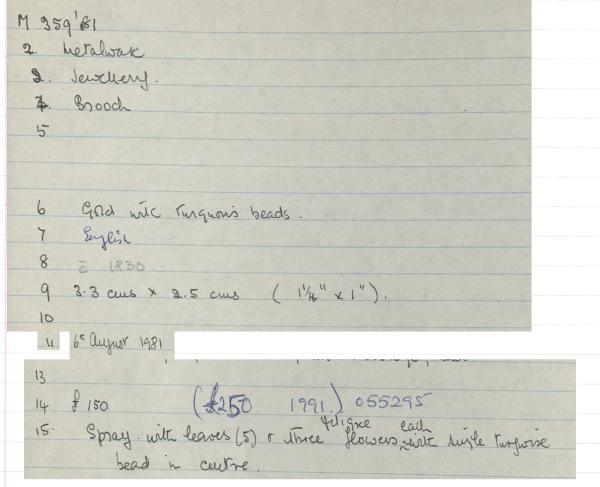 M 359'81
2. Metalwork
3. Jewellery.
4. Brooch
5
6 Gold with turquois beads.
7 English
8 c 1830
9 3.3 cms x 2.5 cms ( 1¼" x 1").
10
11 6th August 1981
13
14 £150 (£250 1991.) 055295
15. Spray with leaves (5) & three filigree flowers each with single turquoise
bead in centre.